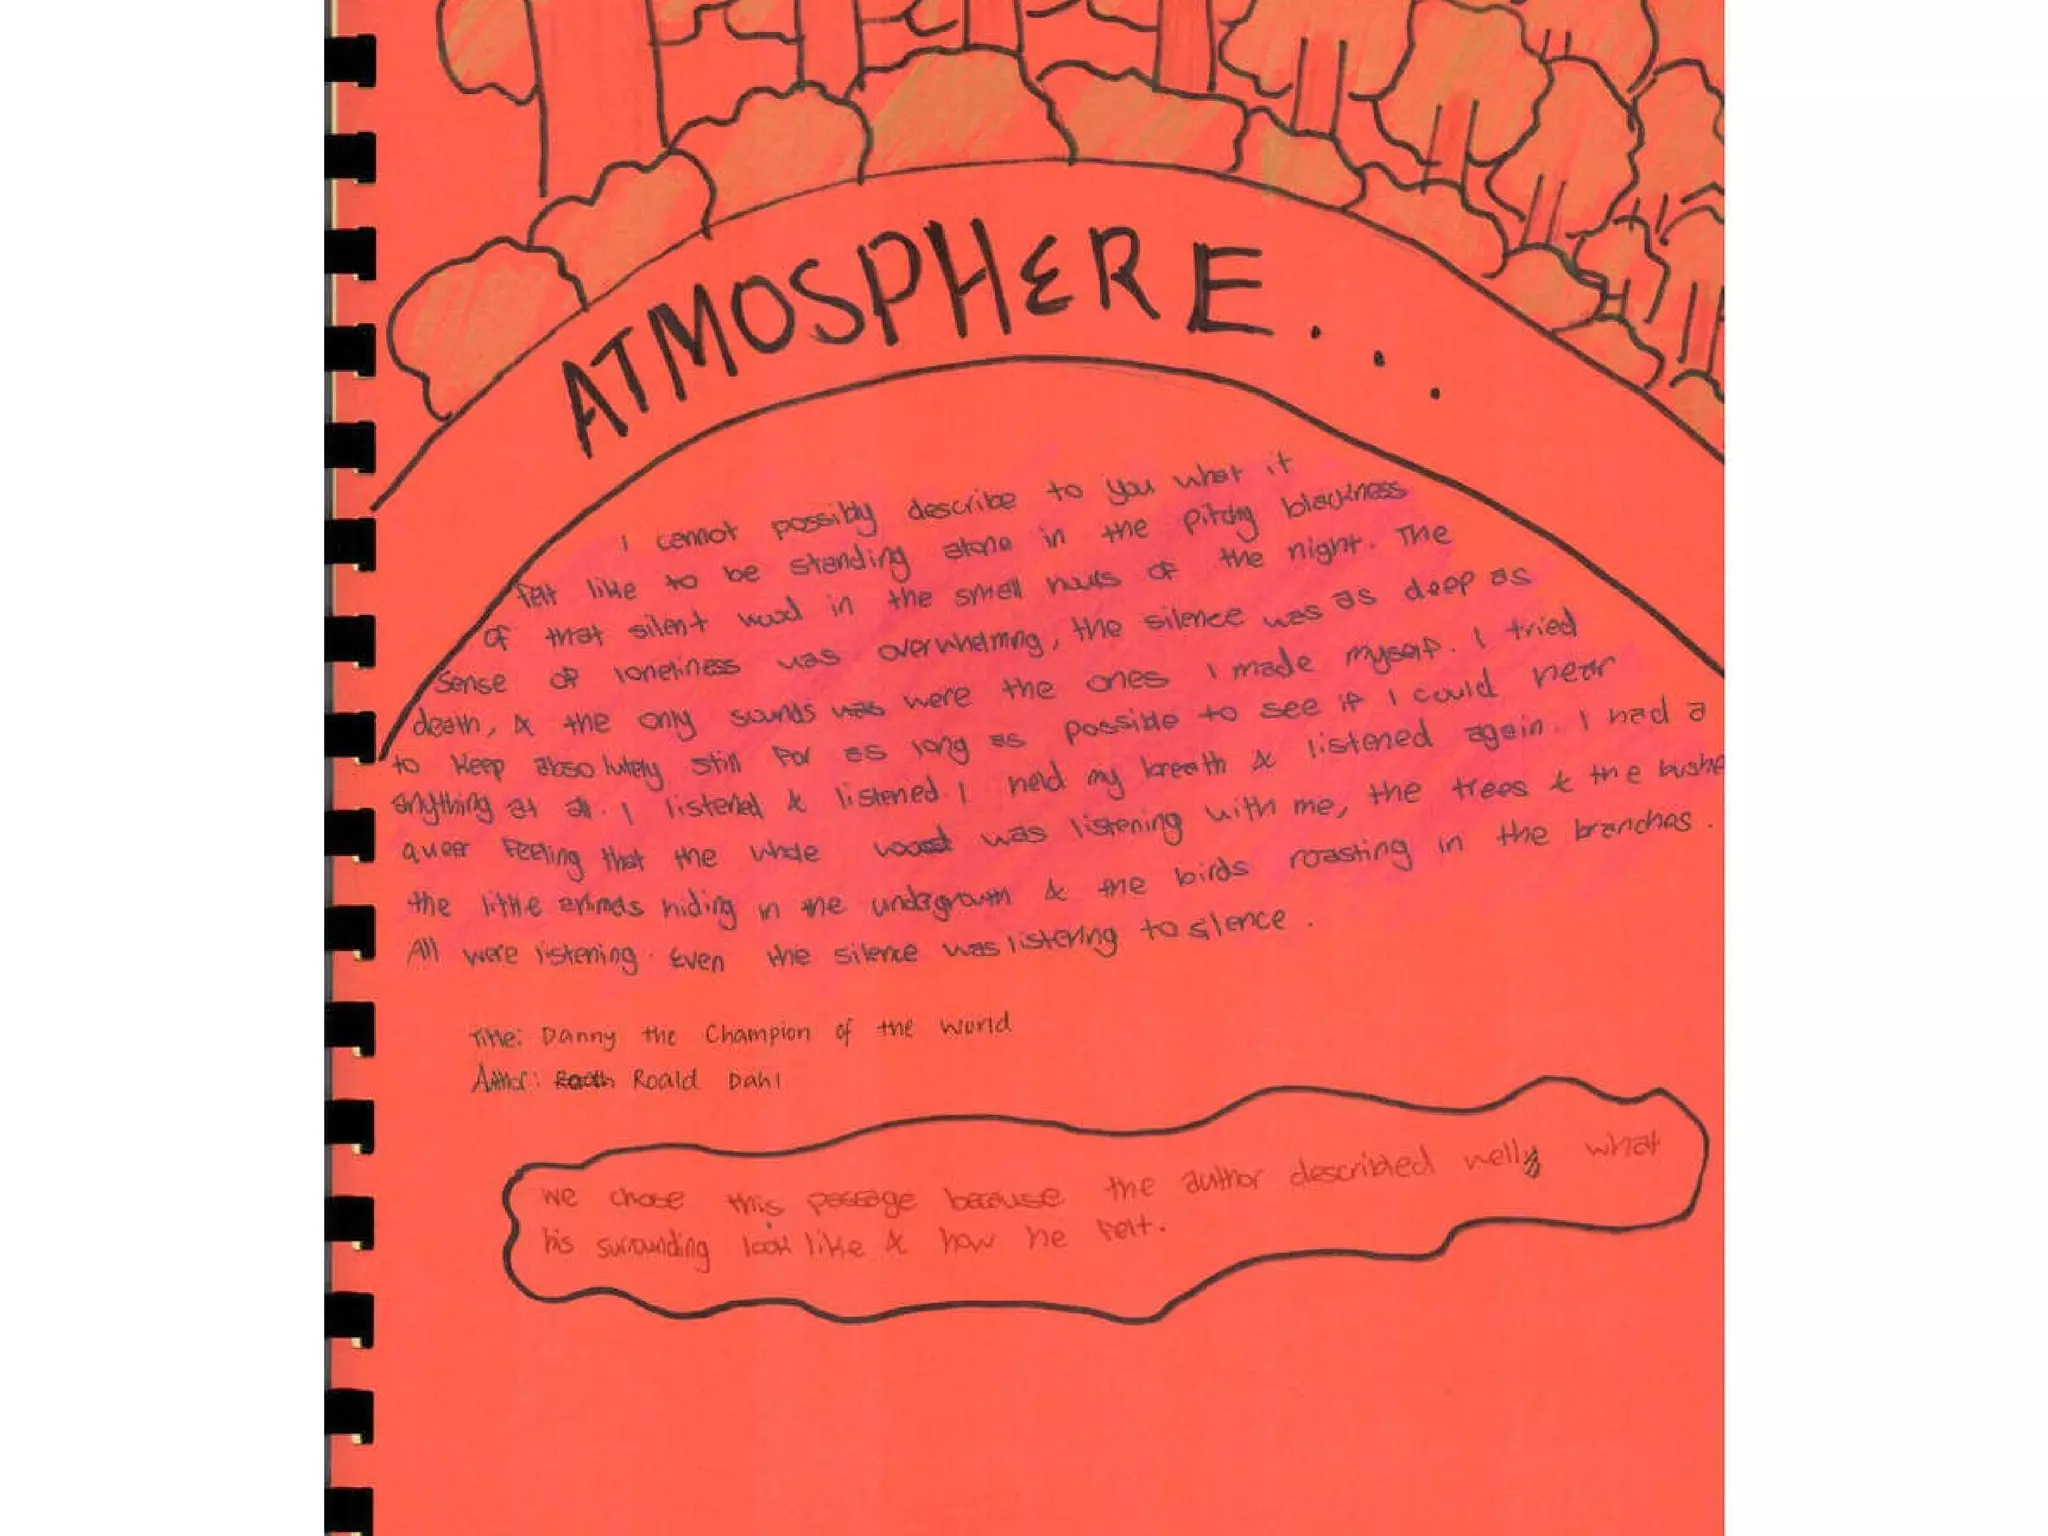 ATMOSPHERE...
I cannot possibly describe to you what it
felt like to be standing alone in the pitchy blackness
of that silent wood in the small hours of the night. The
sense of loneliness was overwhelming, the silence was as deep as
death, & the only sounds was were the ones I made myself. I tried
to keep absolutely still for as long as possible to see if I could hear
anything at all. I listened & listened. I held my breath & listened again. I had a
queer feeling that the whole wood was listening with me, the trees & the bushe
the little animals hiding in the undergrowth & the birds roasting in the branches.
All were listening. Even the silence was listening to silence.
Title: Danny the Champion of the World
Author: Roald Dahl
We chose this passage because the author described well what
his surrounding look like & how he felt.